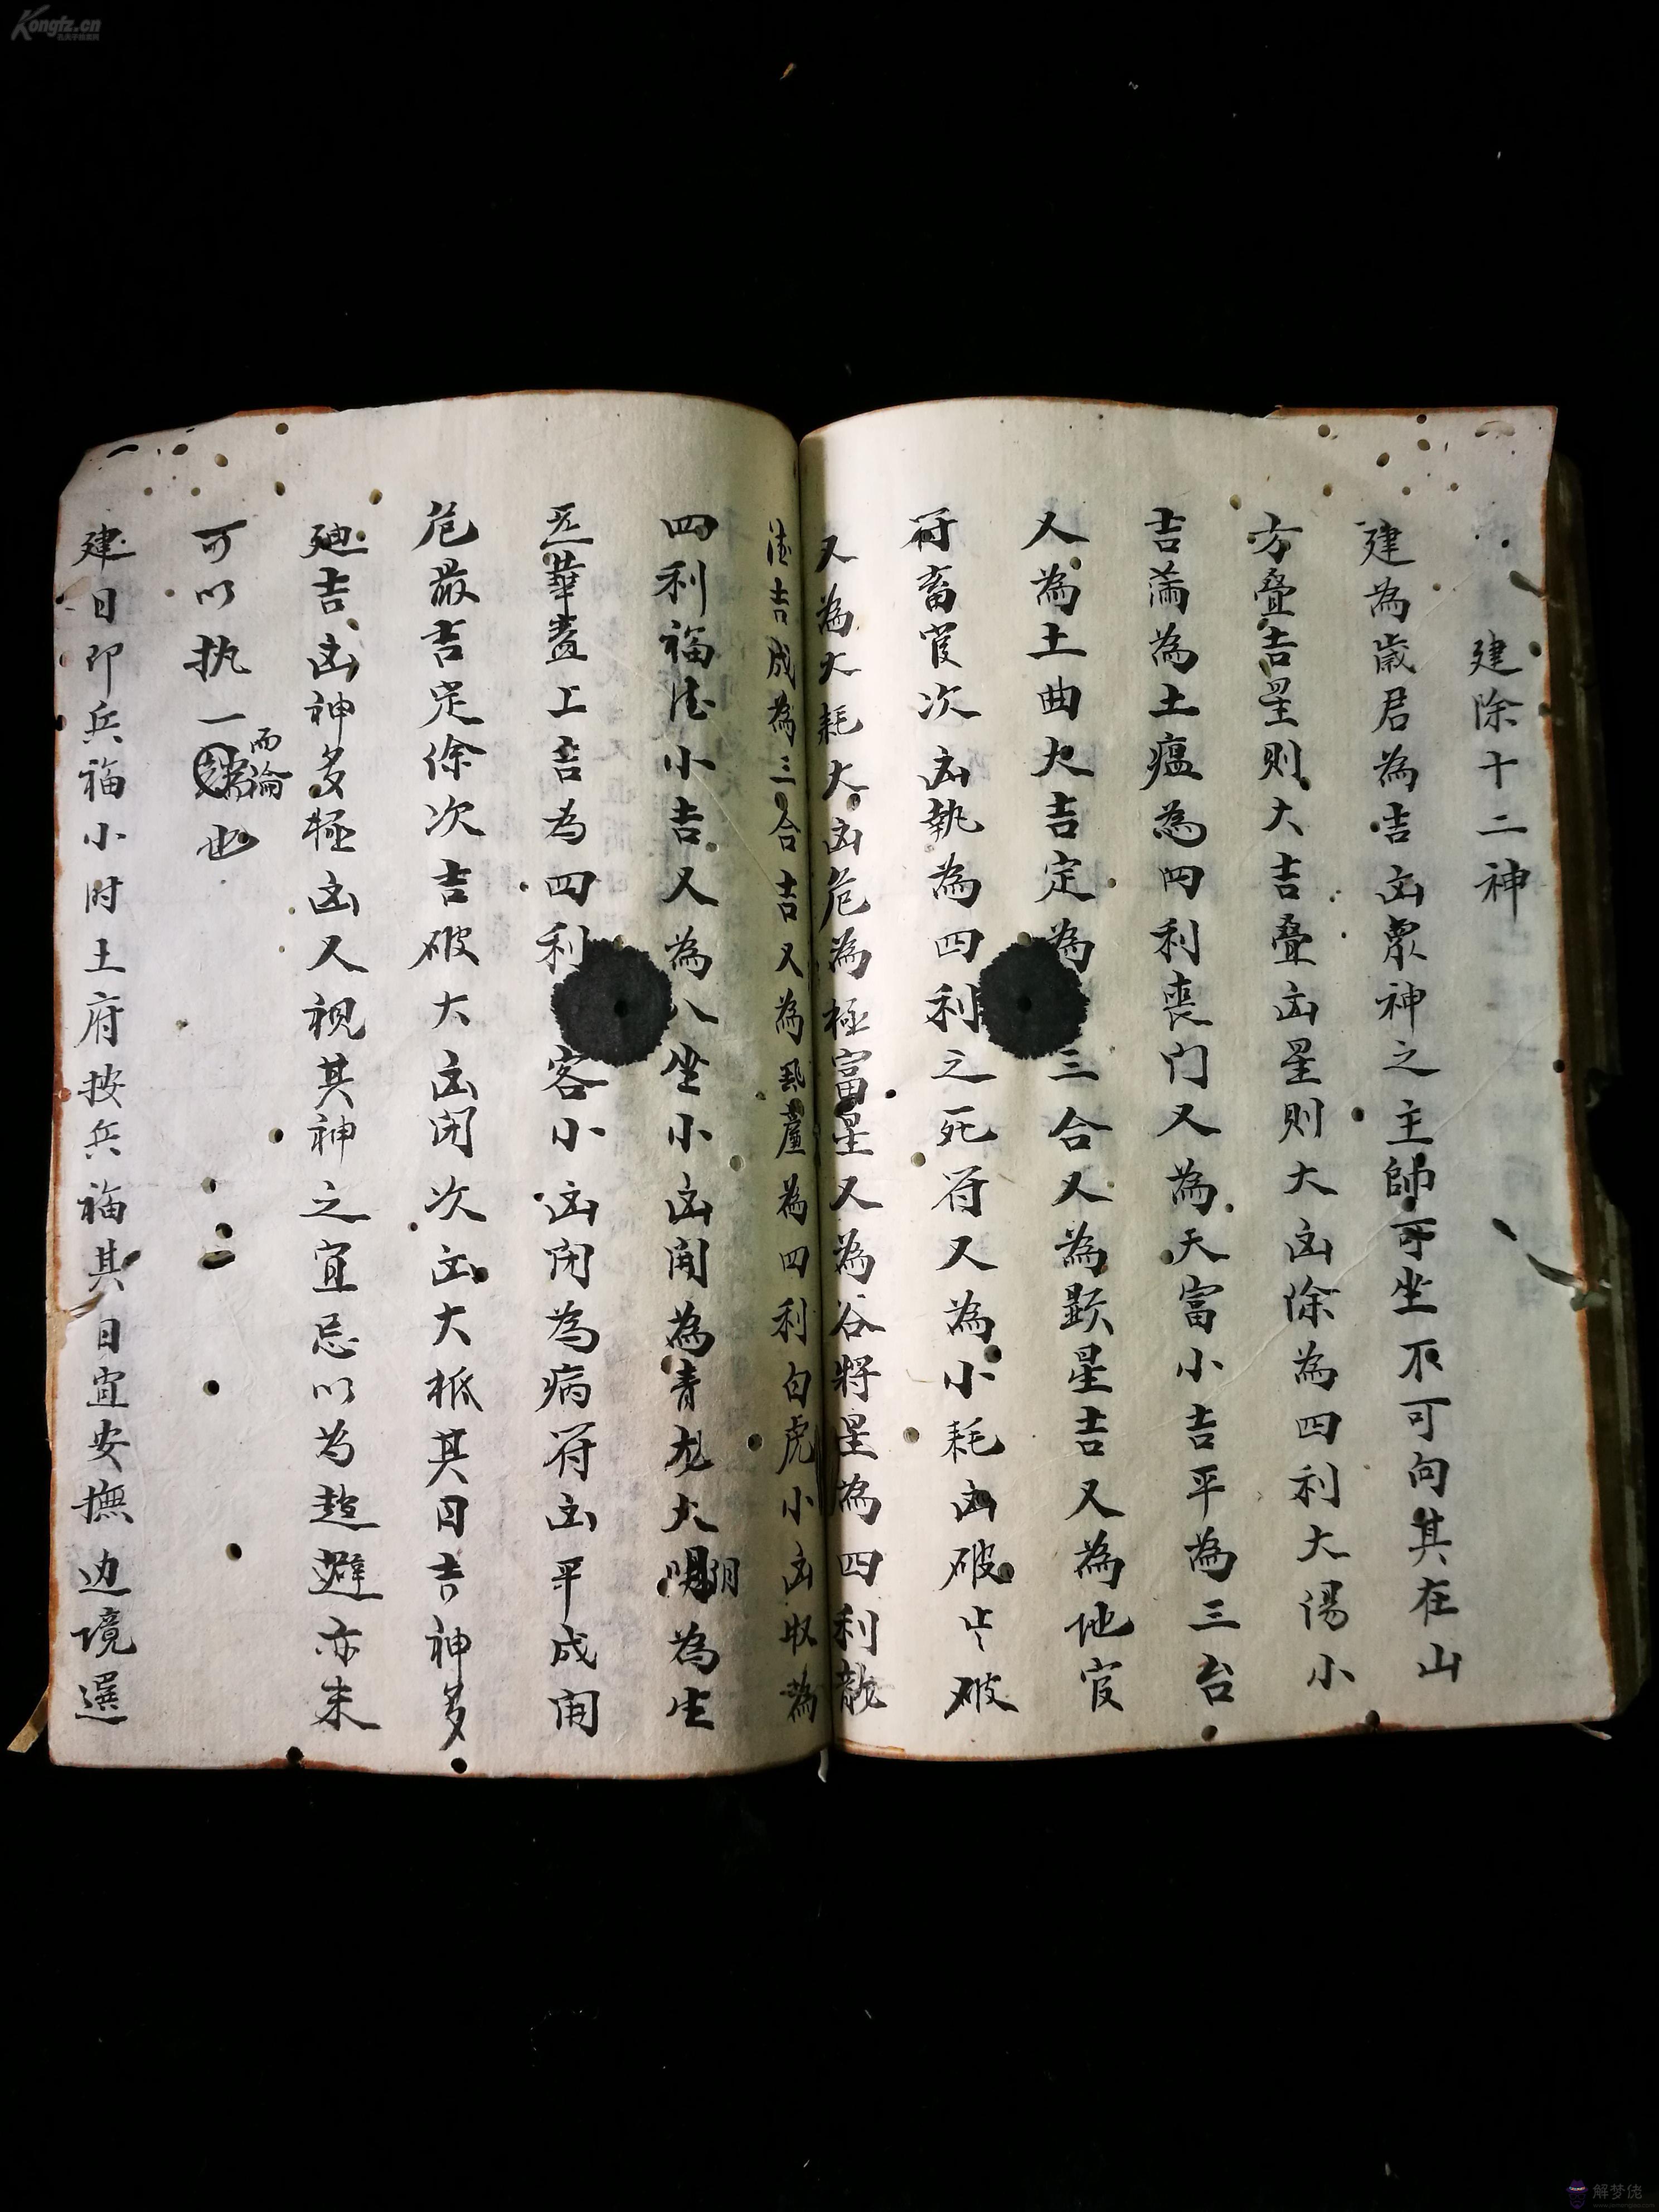 建除十二神
建為歲君為吉凶眾神之主帥可坐不可向其在山
方疊吉星則大吉疊凶星則大凶除為四利大陽小
吉滿為土瘟為四利喪门又為天富小吉平為三台
又為土曲大吉定為三合又為顯星吉又為地官
符畜官次凶執為四利之死符又為小耗凶破为破
又為大耗大凶危為極富星又為谷將星為四利龍
德吉成為三合吉又為 為四利白虎小凶收為
四利福德小吉又為八坐小凶開為青龙大陽為生
炁華蓋上吉为四利 客小凶闭為病符凶平成開
危最吉定除次吉破大凶闭次凶大柢其日吉神多
廸吉凶神多極凶又視其神之宜忌以为趋避亦未
可以执一而論也
建日即兵福小时土府按兵福其日宜安撫边境選
Kongfz.cn
孔夫子旧书网
解梦佬